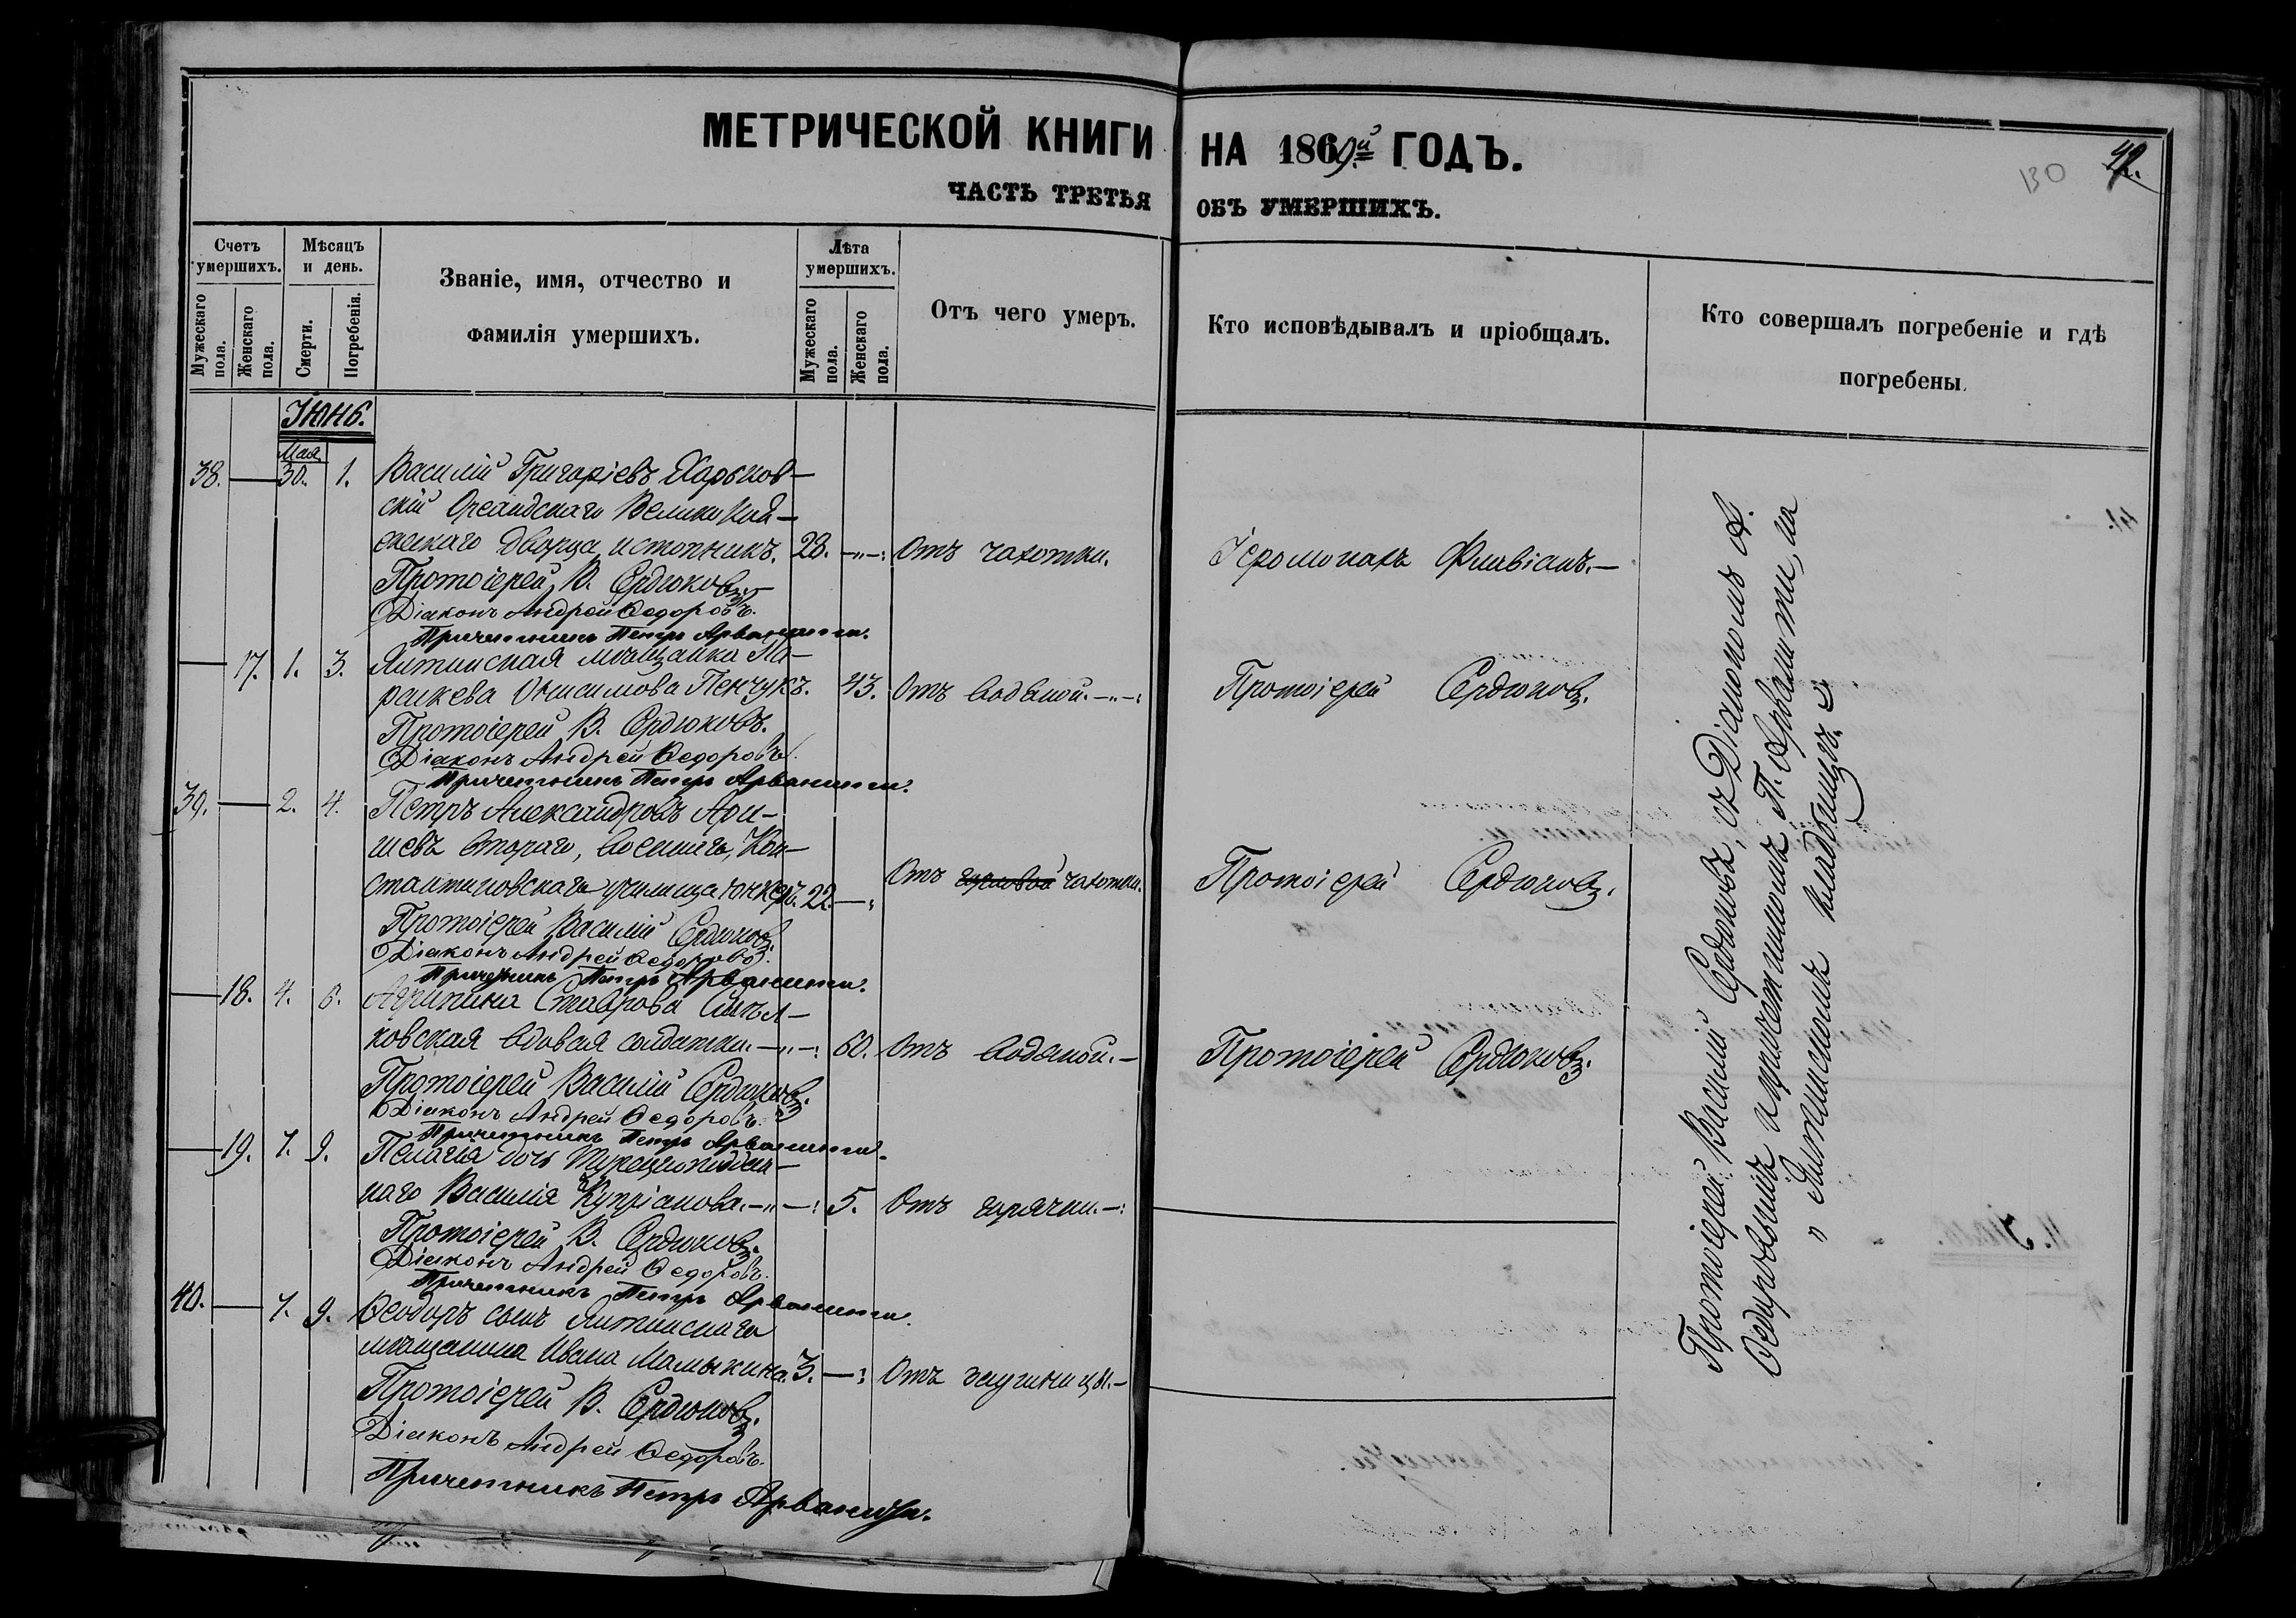 МЕТРИЧЕСКОЙ КНИГИ НА 1869й ГОДЪ.
130 42.
ЧАСТЬ ТРЕТЬЯ ОБЪ УМЕРШИХЪ.
Счетъ умершихъ.
Мужескаго пола.
Женскаго пола.
Мѣсяцъ и день.
Смерти.
Погребенія.
Званіе, имя, отчество и
фамилія умершихъ.
Лѣта умершихъ.
Мужескаго пола.
Женскаго пола.
Отъ чего умеръ.
Кто исповѣдывалъ и пріобщалъ.
Кто совершалъ погребеніе и гдѣ
погребены.
Іюнь.
Мая
38. — 30. 1. Василій Григоріевъ Харьков-
скій Ореандскаго Велико Кня-
жескаго дворца истопникъ. 23. —"—: Отъ чахотки. Іеромонахъ Флавіанъ.—
Протоіерей В. Сердюковъ.
Діаконъ Андрей Ѳедоровъ.
Причетникъ Петръ Арванити.
— 17. 1. 3. Ялтинская мѣщанка Па-
раскева Онисимова Пенчукъ. 43. Отъ водяной.—"—: Протоіерей Сердюковъ.
Протоіерей В. Сердюковъ.
Діаконъ Андрей Ѳедоровъ.
Причетникъ Петръ Арванити.
39. — 2. 4. Петръ Александровъ
втораго, военнаго, Кон-
стантиновскаго училища юнкеръ. 22. —: Отъ чахотки. Протоіерей Сердюковъ.
Протоіерей Василій Сердюковъ.
Діаконъ Андрей Ѳедоровъ.
Причетникъ Петръ Арванити.
— 18. 4. 6. Агрипина Ставрова
ковская вдовая солдатка.—"—: 60. Отъ водяной.— Протоіерей Сердюковъ.
Протоіерей Василій Сердюковъ.
Діаконъ Андрей Ѳедоровъ.
Причетникъ Петръ Арванити.
— 19. 7. 9. Пелагія дочь Турецкоподдан-
наго Василія Купріанова.—"—: 5. Отъ горячки.—:
Протоіерей В. Сердюковъ.
Діаконъ Андрей Ѳедоровъ.
Причетникъ Петръ Арванити.
40. — 7. 9. Ѳеодоръ сынъ Ялтинскаго
мѣщанина Ивана Мамыкина. 3. —: Отъ
Протоіерей В. Сердюковъ.
Діаконъ Андрей Ѳедоровъ.
Причетникъ Петръ Арванити.
Протоіерей Василій Сердюковъ, съ Діакономъ А.
Ѳедоровымъ и причетникомъ П. Арванити, на
" Ялтинскомъ кладбищѣ "